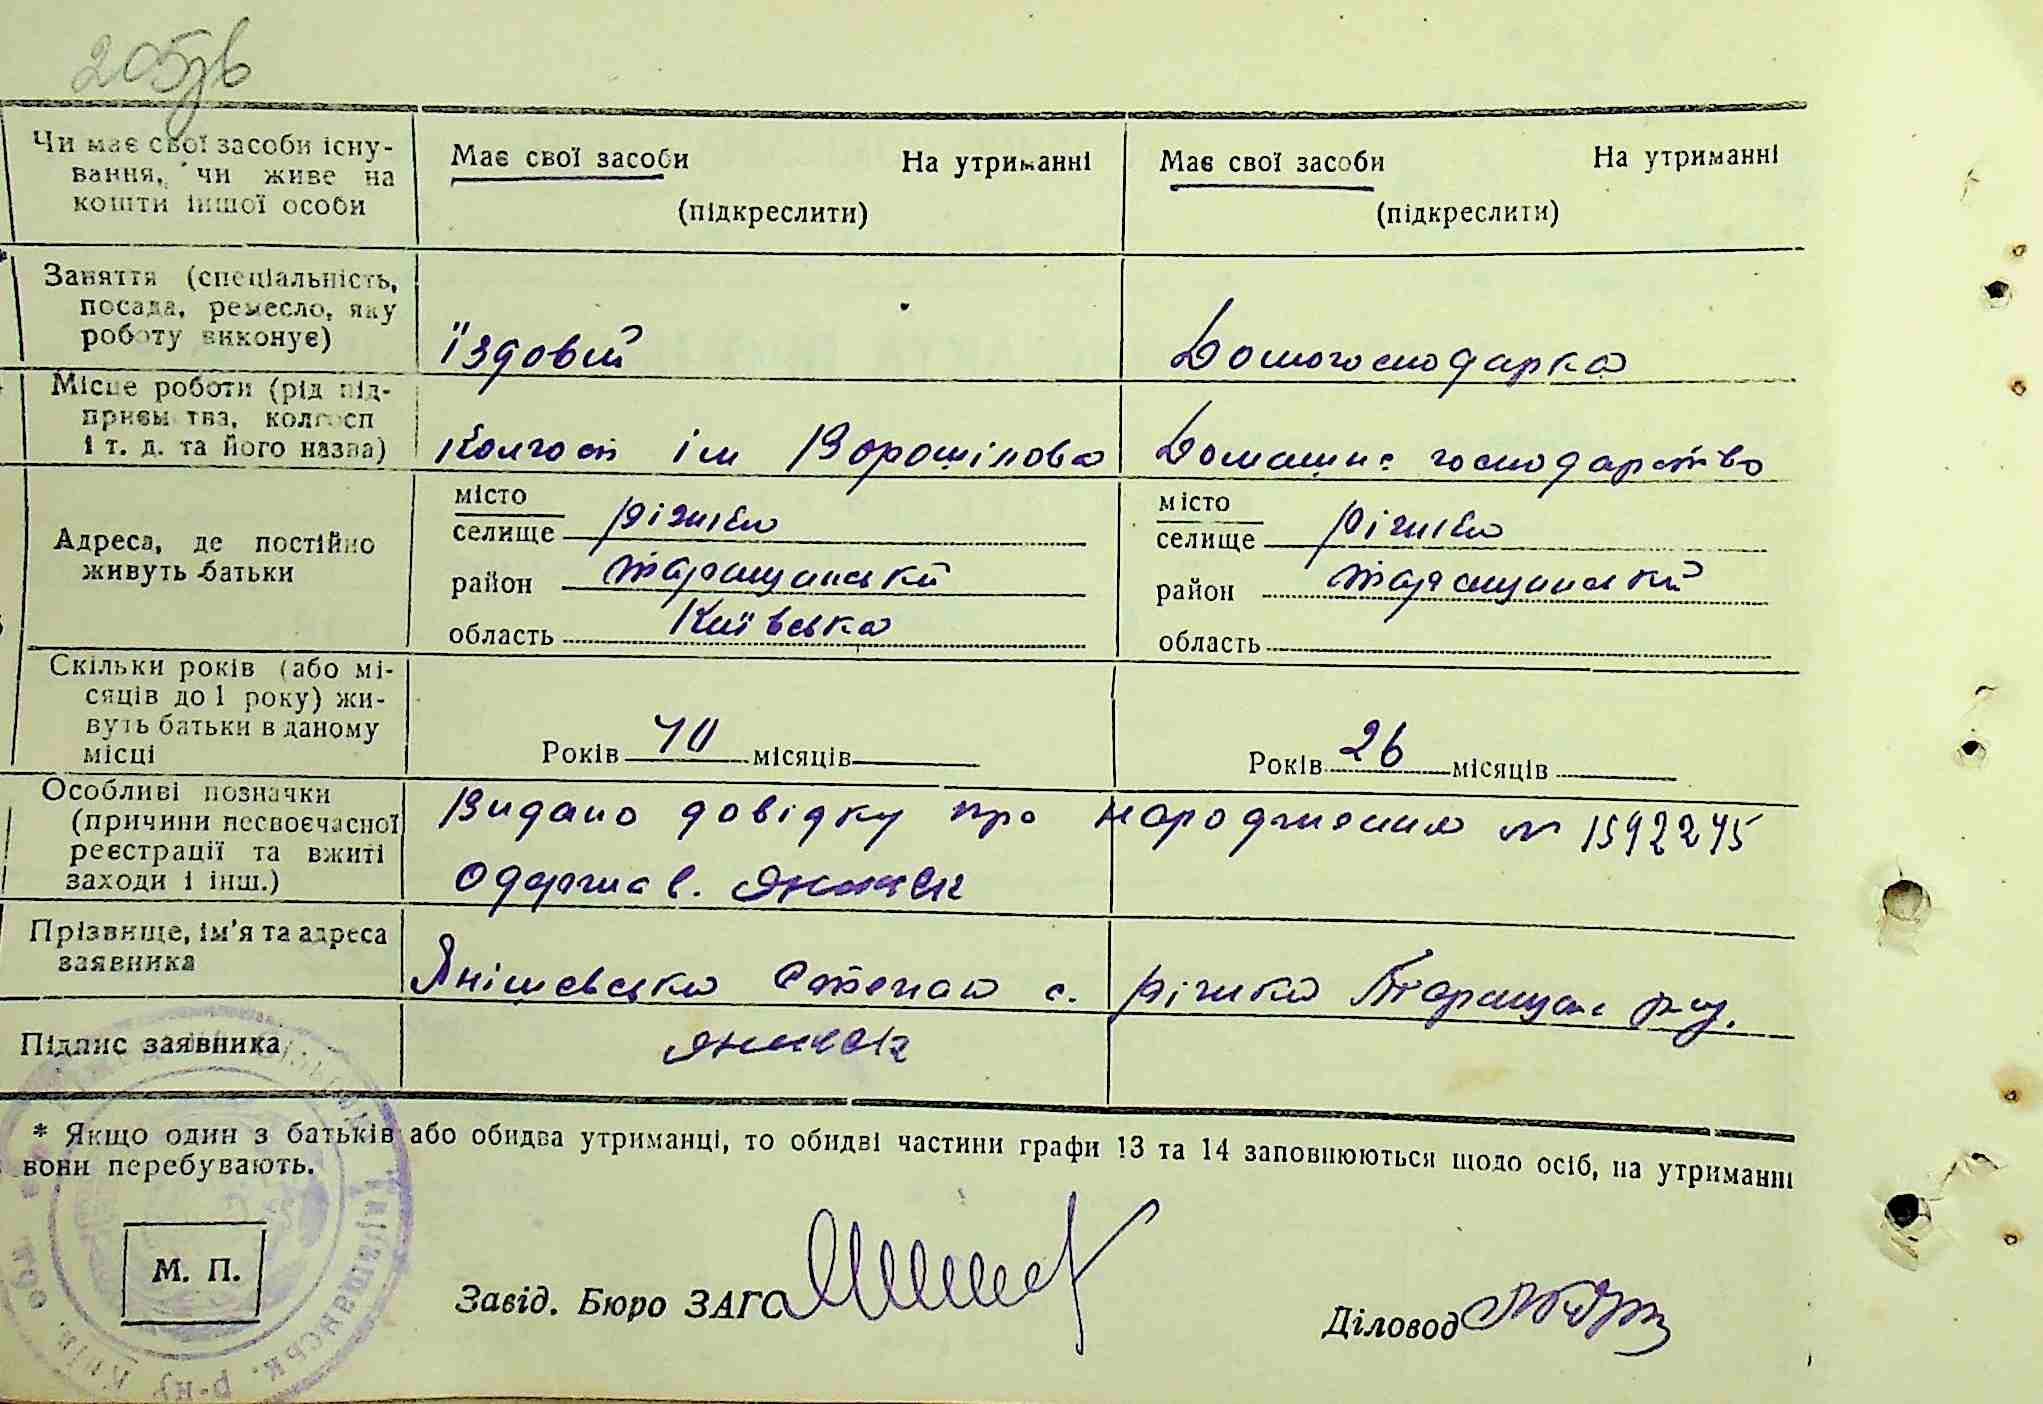 205зв
Чи має свої засоби існу-
вання, чи живе на
кошти іншої особи
Має свої засоби На утриманні
(підкреслити)
Має свої засоби На утриманні
(підкреслити)
Заняття (спеціальність,
посада, ремесло, яку
роботу виконує)
Їздовий
Домогосподарка
Місце роботи (рід під-
приємства, колгосп
і т. д. та його назва)
Колгосп ім Ворошілова
Домашнє господарство
Адреса, де постійно
живуть батьки
місто
селище Ріжки
район Таращанський
область Київська
місто
селище Ріжки
район Таращанський
область
Скільки років (або мі-
сяців до 1 року) жи-
вуть батьки в даному
місці
Років 40 місяців
Років 26 місяців
Особливі позначки
(причини несвоєчасної
реєстрації та вжиті
заходи і інш.)
Видано довідку про народження № 1592245
Одержав.
Прізвище, ім'я та адреса
заявника
Янішевська Степан с. Ріжки Таращан р-ну.
Підпис заявника
* Якщо один з батьків або обидва утриманці, то обидві частини графи 13 та 14 заповнюються щодо осіб, на утриманні
вони перебувають.
М. П.
Завід. Бюро ЗАГС
Діловод